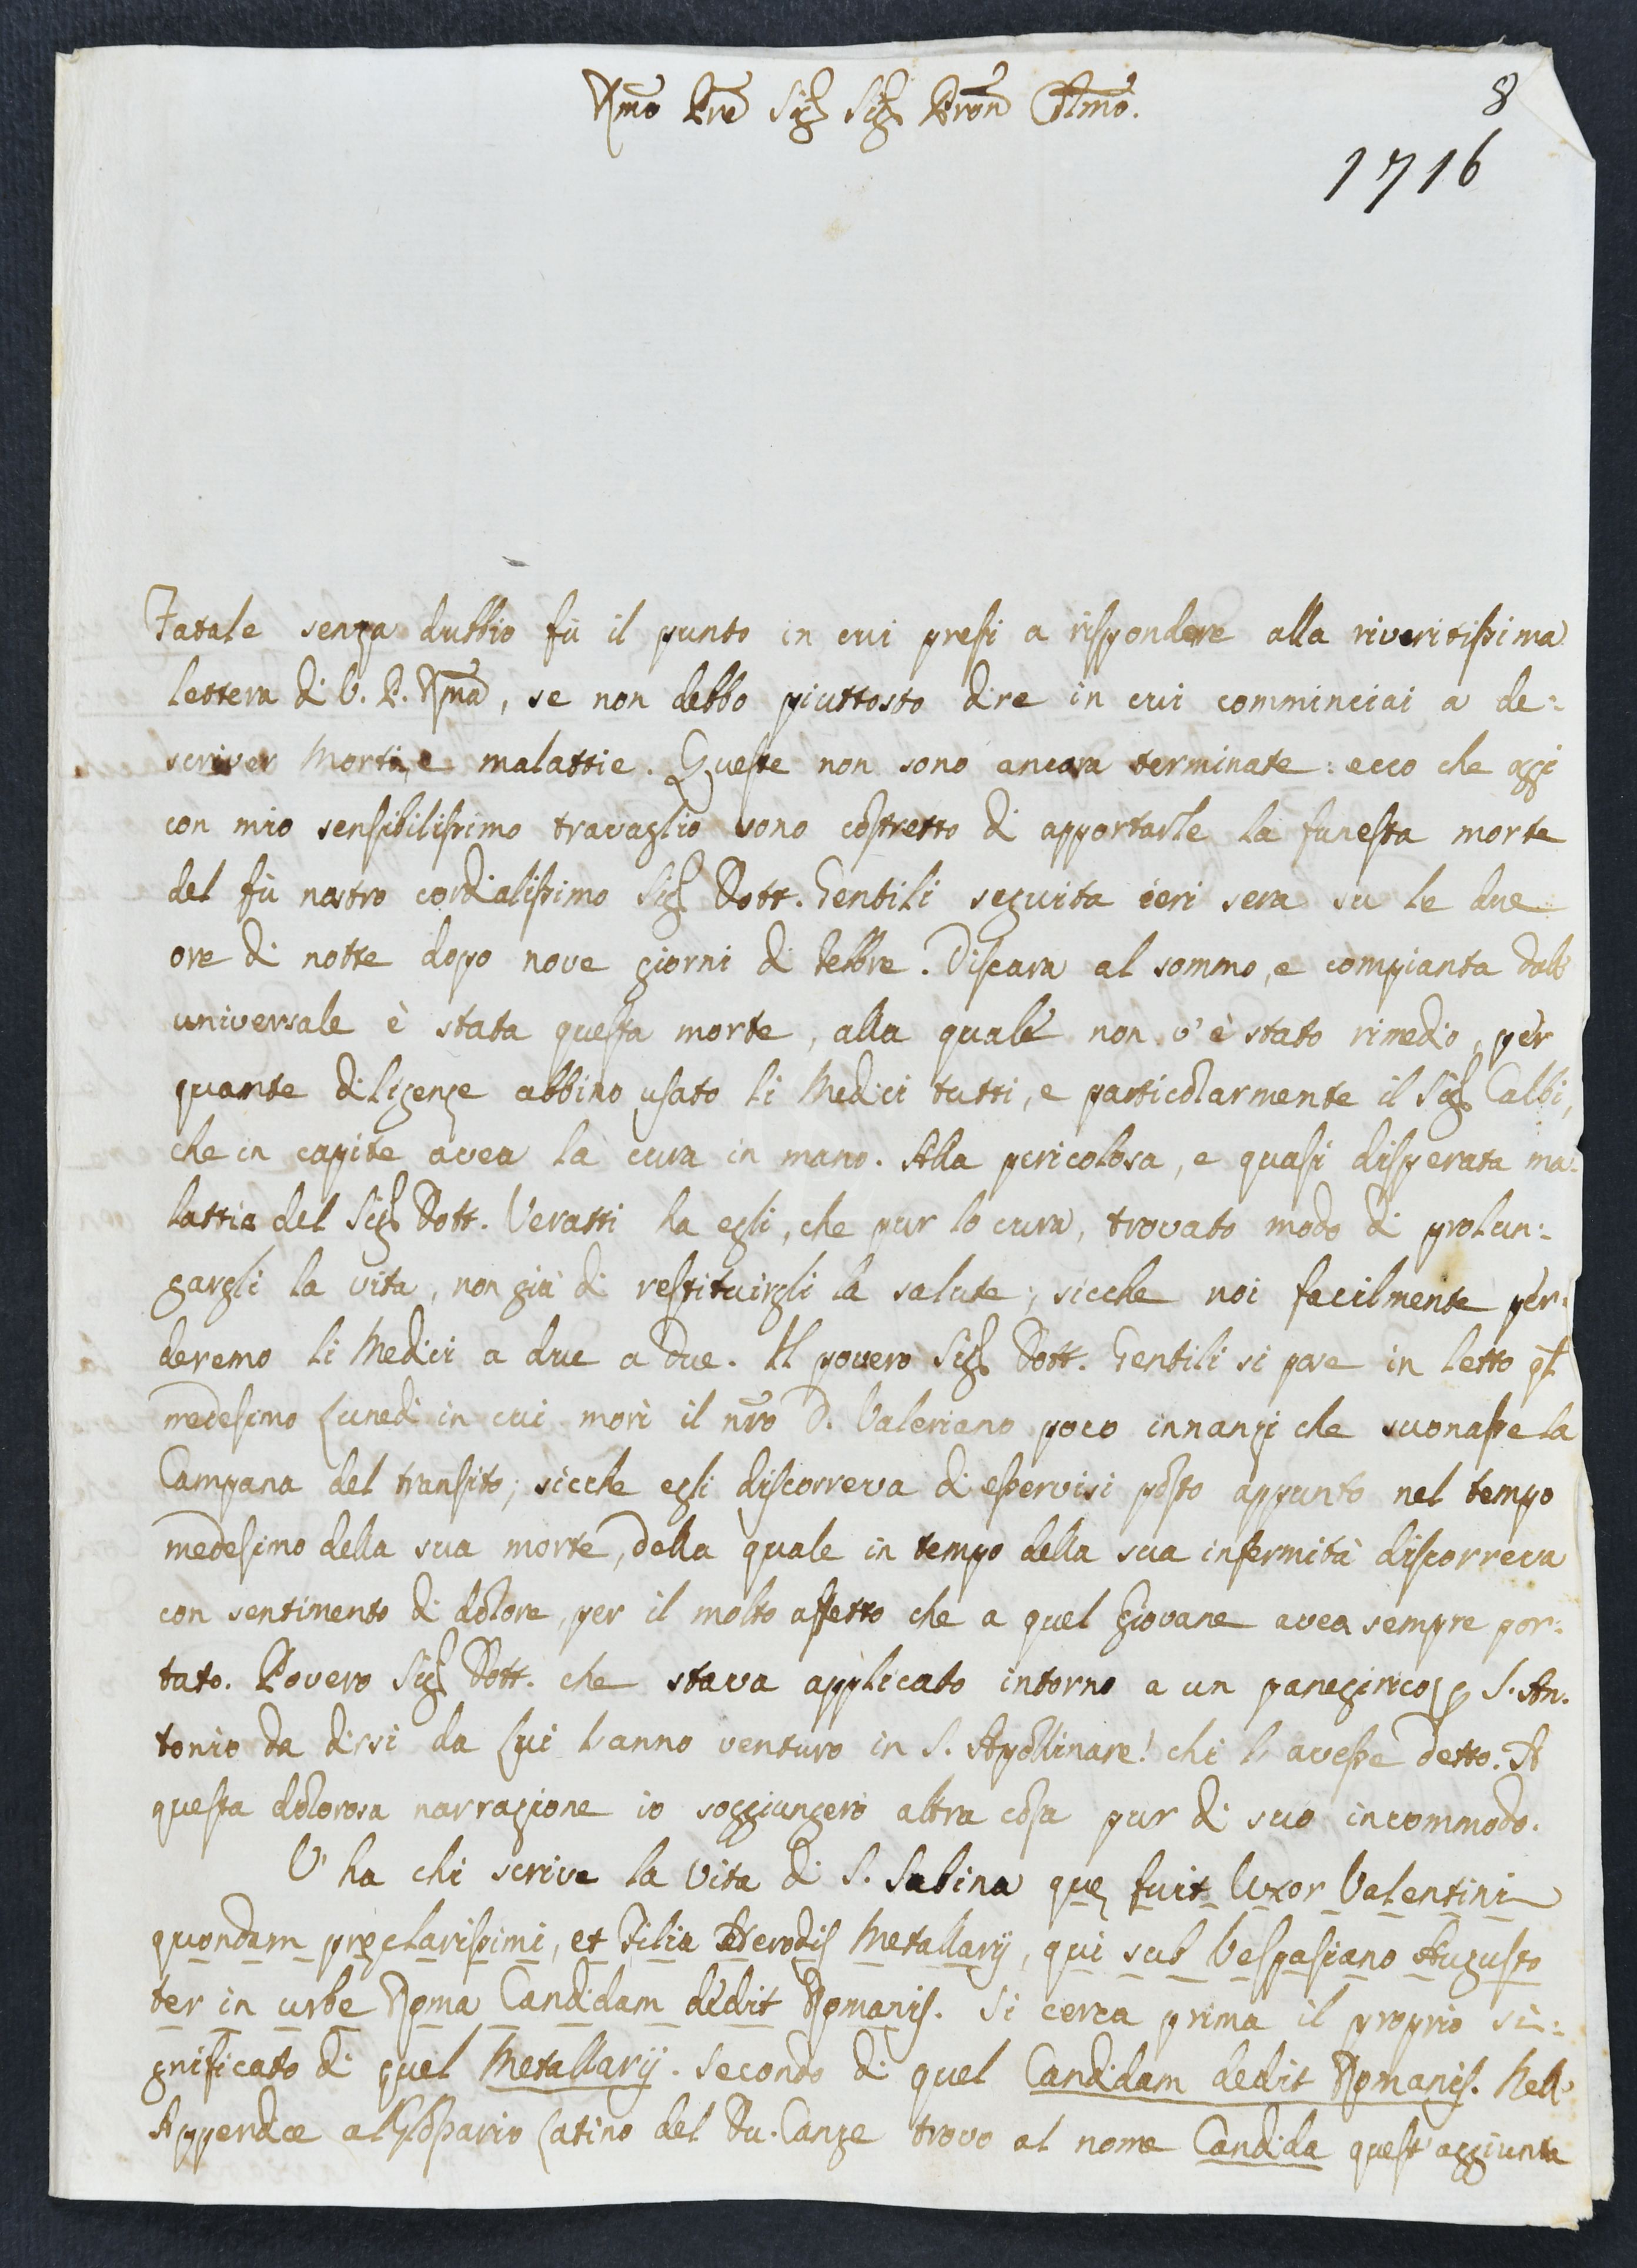 Rmo Pre Sig Sig Pron Colmo.
8
1716
Fatale senza dubbio fù il punto in cui presi a rispondere alla riveritissima
lettera di V. P. Rma, se non debbo piuttosto dire in cui comminciai a de:
scriver morti, e malattie. Queste non sono ancora terminate: ecco che oggi
con mio sensibilissimo travaglio sono costretto di apportarle la funesta morte
del fù nostro cordialissimo Sig Dott. Gentili seguita ieri sera su le due
ore di notte dopo nove giorni di febbre. Discara al sommo, e compianta dall'
universale è stata questa morte, alla quale non v'è stato rimedio, per
quante diligenze abbino usato li Medici tutti, e particolarmente il Sig Calbi,
che in capite avea la cura in mano. Alla pericolosa, e quasi disperata ma:
lattia del Sig Dott. Veratti ha egli, che pur lo cura, trovato modo di prolun:
gargli la vita, non già di restituirgli la salute; sicche noi facilmente per:
deremo li Medici a due a due. Il povero Sig Dott. Gentili si pose in letto ql
medesimo Lunedì in cui morì il nro D. Valeriano poco innanzi che suonasse la
Campana del transito; sicche egli discorreva di esservisi posto appunto nel tempo
medesimo della sua morte, della quale in tempo della sua infermità discorreva
con sentimento di dolore, per il molto affetto che a quel Giovane avea sempre por:
tato. Povero Sig Dott. che stava applicato intorno a un panegirico p S. An:
tonio da dirsi da Lui l'anno venturo in S. Apollinare! chi l'avesse detto. A
questa dolorosa narrazione io soggiungerò altra cosa pur di suo incommodo.
V'ha chi scrive la Vita di S. Sabina quę fuit Uxor Valentini
quondam pręclarissimi, et Filia Herodis Metallarij, qui sub Vespasiano Augusto
ter in urbe Roma Candidam dedit Romanis. Si cerca prima il proprio si:
gnificato di quel Metallarij. Secondo di quel Candidam dedit Romanis. Nell'
Appendice al Glossario Latino del Du-Cange trovo al nome Candida quest'aggiunta